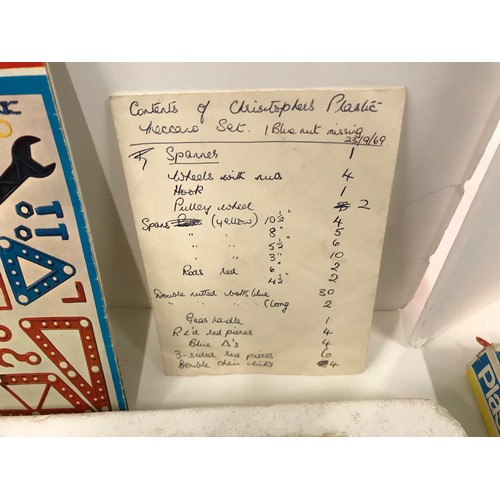 Contents of Chrisitophers Plastic
Meccano Set. 1 Blue nut missing
23/9/69
Spanner 1
Wheels with nuts 4
Hook 1
Pulley wheel 2
Spans (yellow) 10½" 4
" " 8" 5
" " 5½" 6
" " 3" 10
Rods red 6" 2
" " 4½" 2
Double nutted bolts blue 30
" " " " (long 2
Gear handle 1
R L'd red pieces 4
Blue Δ's 4
3-sided red pieces 6
Double chain links 4
Pla